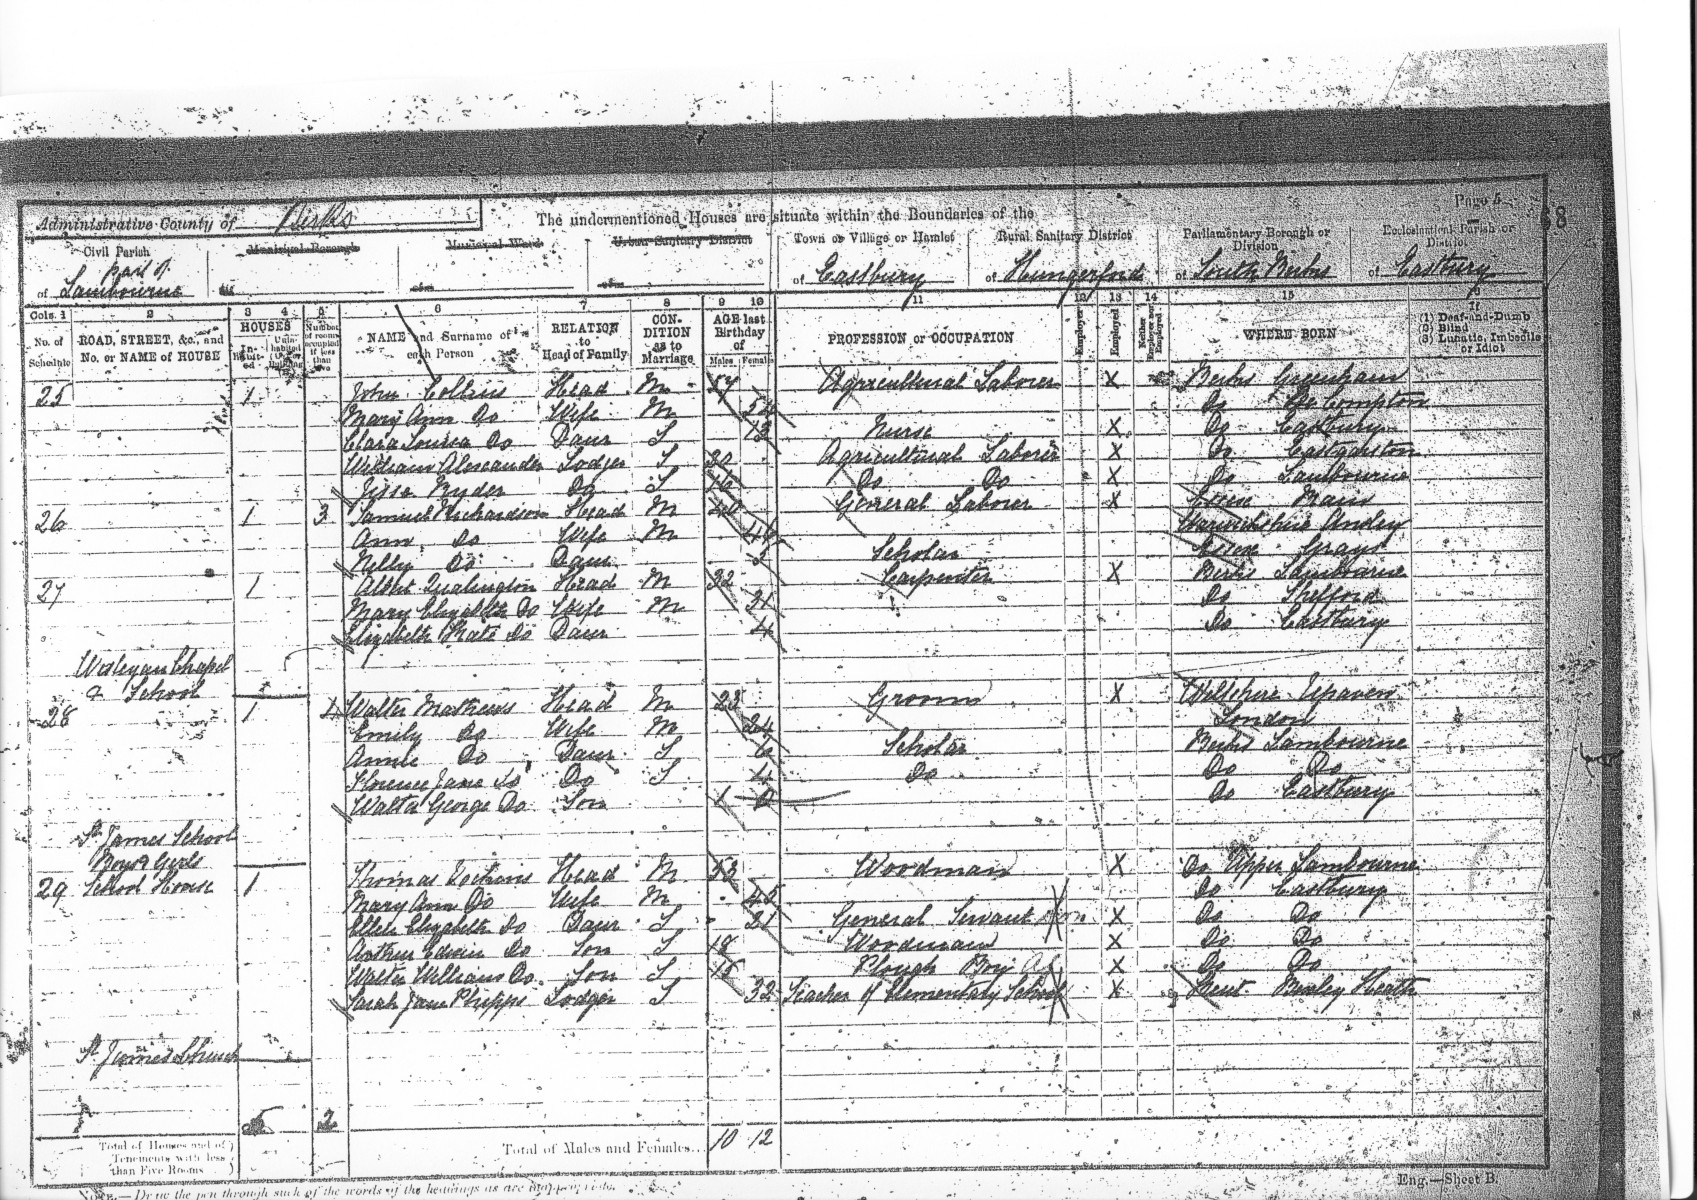 Page 4
68
Administrative County of Berks
The undermentioned Houses are situate within the Boundaries of the
Civil Parish
part of
of Lambourne
Municipal Borough
of
Municipal Ward
of
Urban Sanitary District
of
Town or Village or Hamlet
of Eastbury
Rural Sanitary District
of Hungerford
Parliamentary Borough or Division
of South Berks
Ecclesiastical Parish or District
of Eastbury
Cols. 1 2 3 4 5 6 7 8 9 10 11 12 13 14 15 16
No. of Schedule
ROAD, STREET, &c., and No. or NAME of HOUSE
HOUSES
Inhabited
Uninhabited (U.) or Building
Number of rooms occupied if less than five
NAME and Surname of each Person
RELATION to Head of Family
CONDITION as to Marriage
AGE last Birthday of
Males Females
PROFESSION or OCCUPATION
Employer
Employed
Neither Employer nor Employed
WHERE BORN
If
(1) Deaf-and-Dumb
(2) Blind
(3) Lunatic, Imbecile or Idiot
25 1 John Collins Head M 57 Agricultural Labourer X Berks Greenham
Mary Ann Do Wife M 54 Do Compton
Clara Louisa Do Daur S 13 Nurse X Do Eastbury
William Alexander Lodger S 30 Agricultural Labourer X Do Eastgarston
Jesse Ryder Do S 16 Do Do X Do Lambourne
26 1 3 Samuel Richardson Head M 40 General Labour X Essex
Ann Do Wife M 44 Warwickshire Ansley
Nelly Do Daur Scholar Essex Grays
27 1 Albert Qualington Head M 32 Carpenter X Berks Lambourne
Mary Elizabeth Do Wife M 31 Do Shefford
Elizabeth Kate Do Daur 4 Do Eastbury
Wesleyan Chapel
& School
28 1 4 Walter Mathews Head M 28 Groom X Wiltshire Upaven
Emily Do Wife M 24 London
Annie Do Daur S 6 Scholar Berks Lambourne
Florence Jane Do Do S 4 Do Do Do
Walter George Do Son 1 Do Eastbury
St James School
Boys & Girls
29 School House 1 Thomas Head M 53 Woodman X Do Upper Lambourne
Mary Ann Do Wife M 48 Do Eastbury
Ellen Elizabeth Do Daur S 21 General Servant Dom X Do Do
Arthur Edwin Do Son S 18 Woodman X Do Do
Walter William Do Son S 15 Plough Boy Ag X Do Do
Sarah Jane Phipps Lodger S 32 Teacher of Elementary School X Kent Bexley Heath
St James Church
5 2
Total of Houses and of Tenements with less than Five Rooms
Total of Males and Females... 10 12
NOTE.—Draw the pen through such of the words of the headings as are inappropriate.
Eng.—Sheet B.